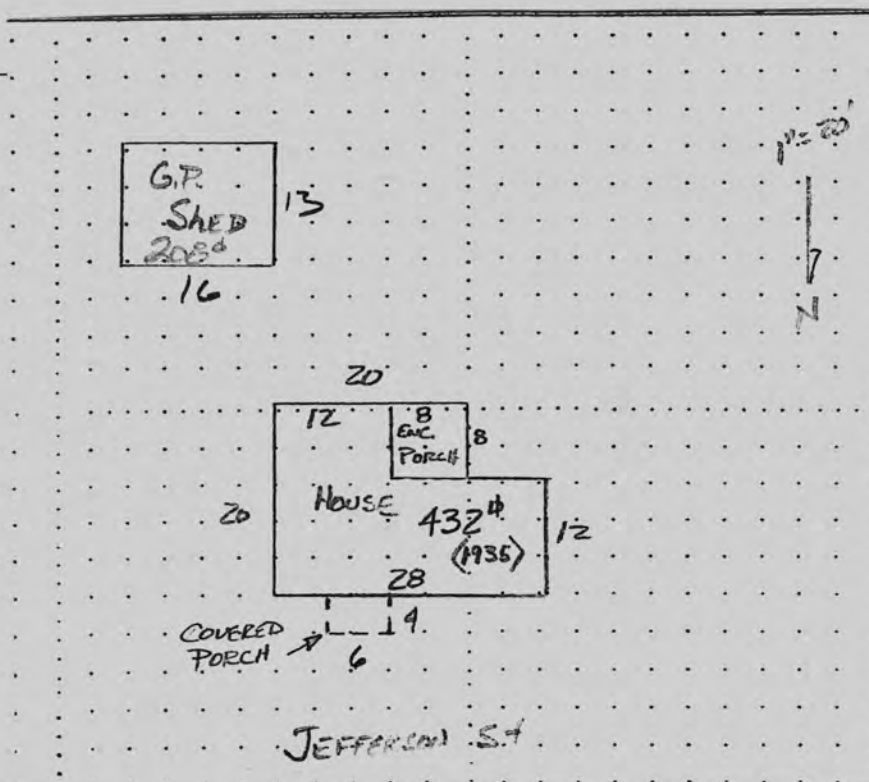 1"=20'
N
G.P.
SHED
208ф
13
16
20
12
8
ENC.
PORCH
8
20
HOUSE
432ф
(1935)
12
28
COVERED
PORCH
4
6
JEFFERSON St